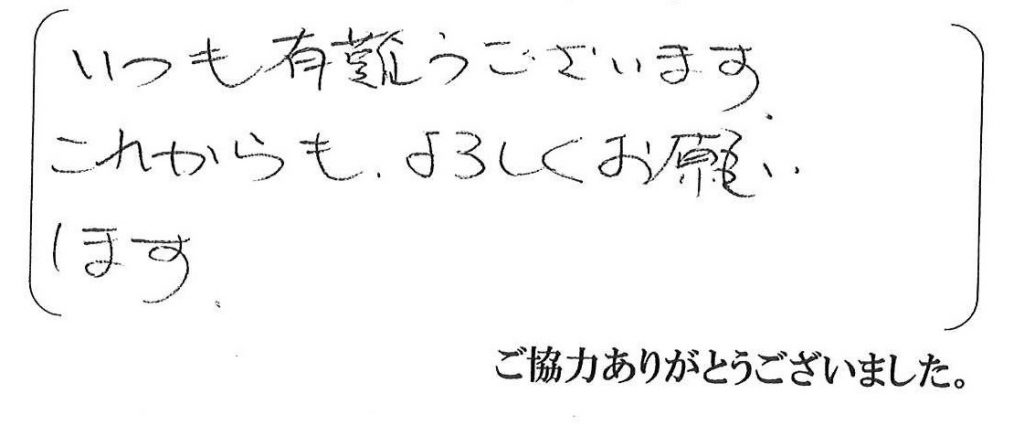 いつも有難うございます.
これからも、よろしくお願い
します.
ご協力ありがとうございました。